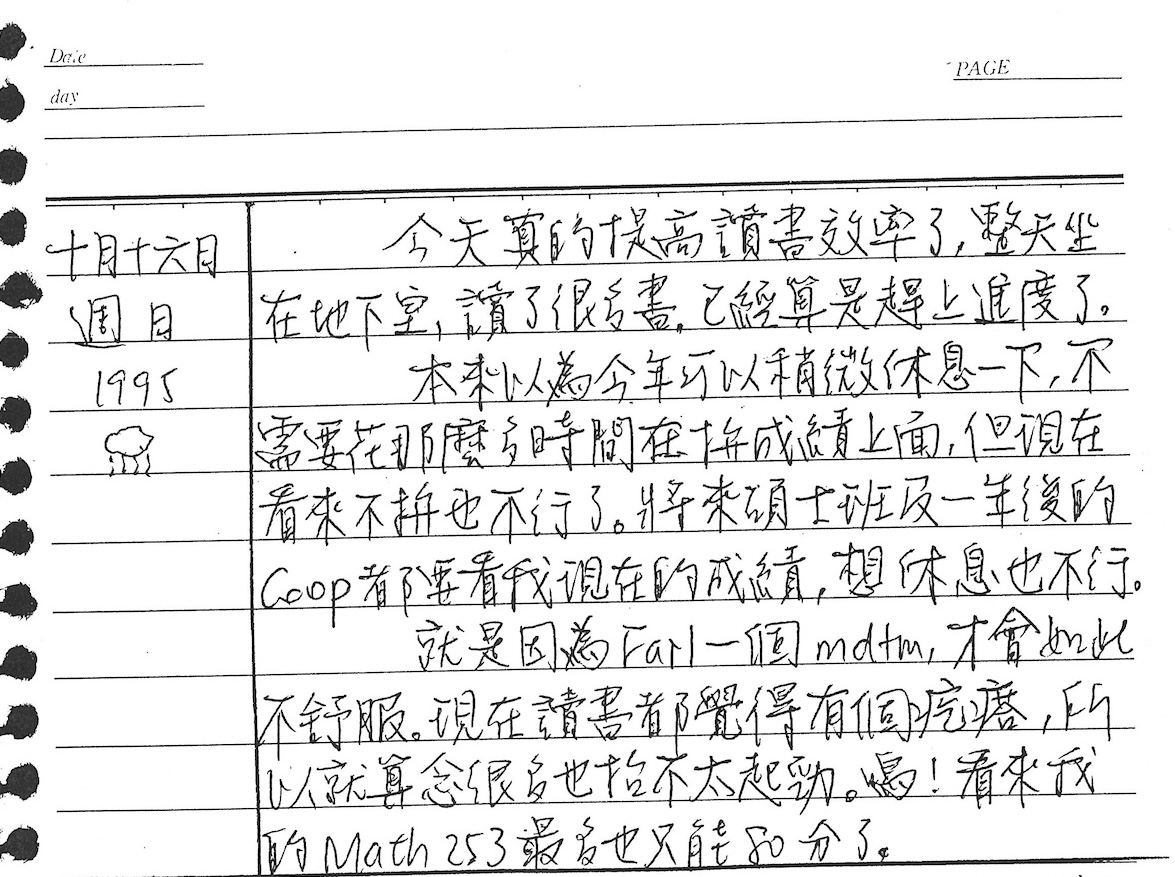 Date
PAGE
day
十月十六日
週日
1995
今天真的提高讀書效率了,整天坐
在地下室,讀了很多書,已經算是趕上進度了。
本來以為今年可以稍微休息一下,不
需要花那麼多時間在拚成績上面,但現在
看來不拚也不行了。將來碩士班及一年後的
Coop都要看我現在的成績,想休息也不行。
就是因為Fail一個mdtm,才會如此
不舒服。現在讀書都覺得有個疙瘩,所
以就算念很多也抬不太起勁。嗚!看來我
的Math 253最多也只能80分了。